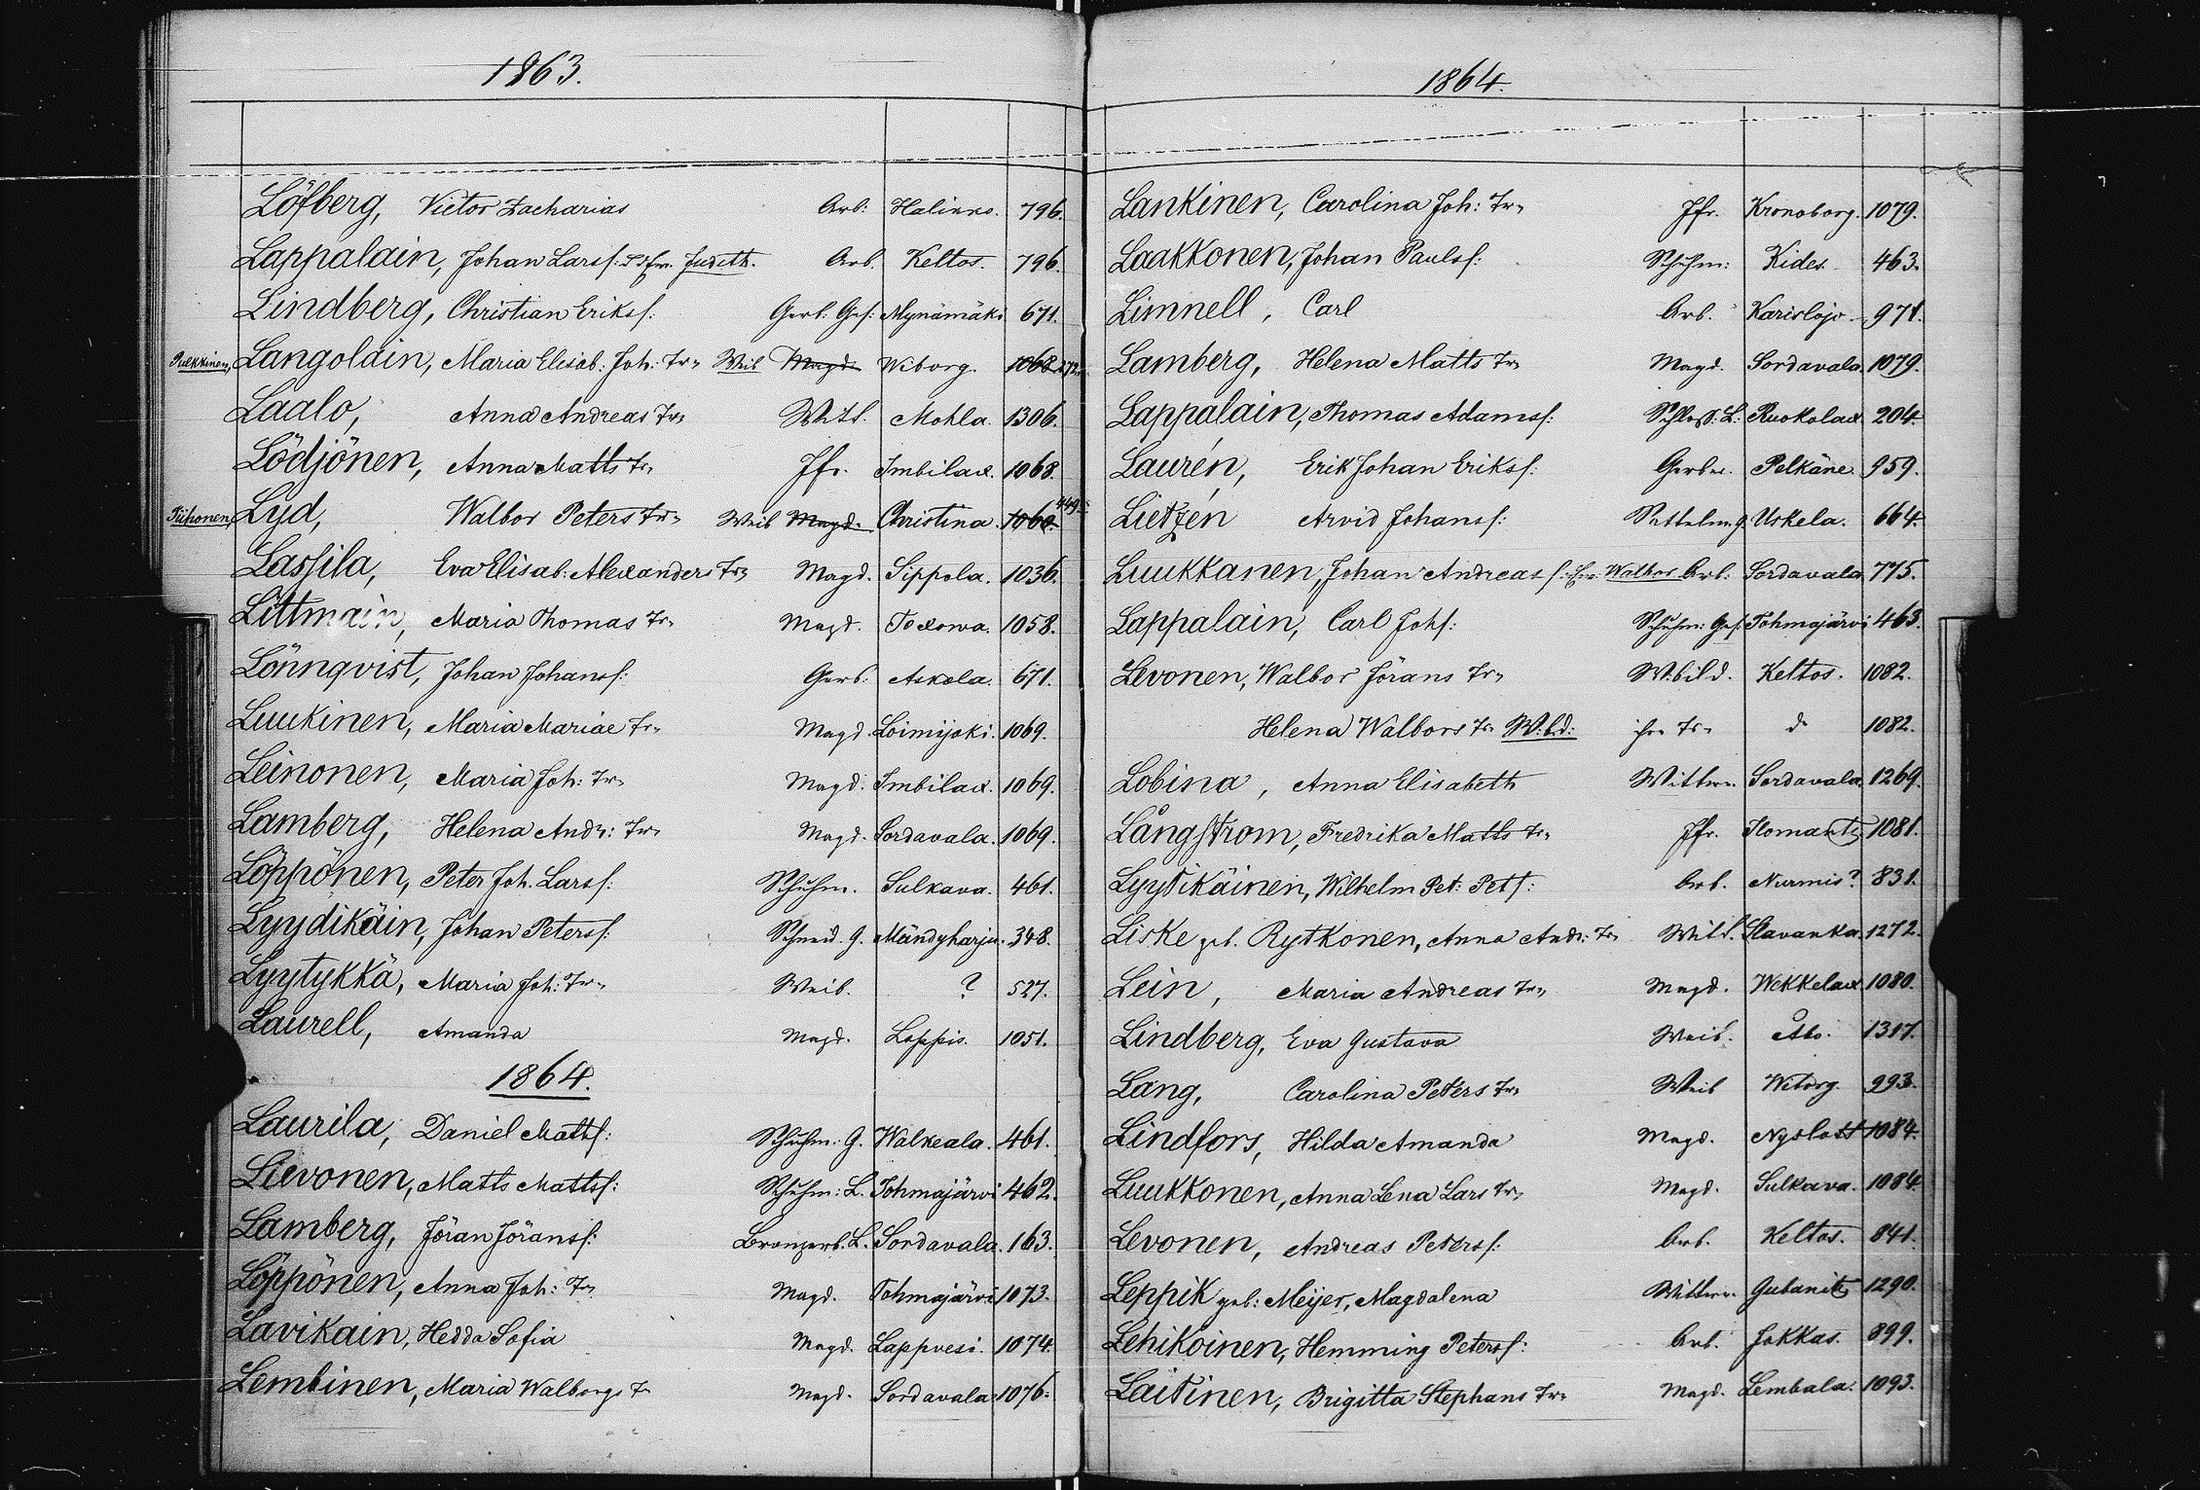 1863.
Löfberg, Victor Zacharias Arb: Halikko. 796.
Lappalain, Johan Larsf: Judith. Arb. Keltos. 796.
Lindberg, Christian Eriksf: Gerb: Ges: Mynämäki 671.
Pulkkinen, Langolain, Maria Elisab: Joh: Tr. Weib Magd. Wiborg. 1068 272.
Laalo, Anna Andreas Tr. Mohla. 1306.
Lödjönen, Anna Matts Tr. Jfr. Imbilax. 1068.
Tiihonen, Lyd, Walbor Peters Tr. Weib Magd. Christina. 1060. 449.
Lassila, Eva Elisab: Alexanders Tr. Magd. Sippola. 1036.
Littmain, Maria Thomas Tr. Magd. Toxowa. 1058.
Lönnqvist, Johan Johansf: Gerb: Askola. 671.
Luukinen, Maria Mariae Tr. Magd. Loimijoki. 1069.
Leinonen, Maria Joh: Tr. Magd. Imbilax. 1069.
Lamberg, Helena Andr: Tr. Magd. Sordavala. 1069.
Löppönen, Peter Joh. Larsf: Schuhm. Sulkava. 461.
Lyydikäin, Johan Petersf: Schneid. G. Mändyharju. 348.
Lyytykkä, Maria Joh: Tr. Weib. ? 527.
Laurell, Amanda Magd. Loppis. 1051.
1864.
Laurila, Daniel Mattsf: Schuhm: G. Walkeala. 461.
Lievonen, Matts Mattsf: Schuhm: L. Tohmajärvi 462.
Lamberg, Jöran Jöransf: Bronzearb. L. Sordavala. 163.
Löppönen, Anna Joh: Tr. Magd. Tohmajärvi 1073.
Lavikain, Hedda Sofia Magd. Lappvesi. 1074.
Lembinen, Maria Walborgs T. Magd. Sordavala 1076.
1864.
Lankinen, Carolina Joh: Tr. Jfr. Kronoborg. 1079.
Laakkonen, Johan Paulsf: Schuhm: Kides. 463.
Limnell, Carl Arb. Karislojo. 971.
Lamberg, Helena Matts Tr. Magd. Sordavala. 1079.
Lappalain, Thomas Adamsf: Schloss. L. Ruokolax 204.
Laurén, Erik Johan Eriksf: Gerber. Pelkäne. 959.
Lietzén Arvid Johansf: Sattelm. G. Uskela. 664.
Luukkanen, Johan Andreas f: Walbor Arb: Sordavala 775.
Lappalain, Carl Johf: Schuhm: Ges: Tohmajärvi 463.
Levonen, Walbor Jörans Tr. Keltos. 1082.
Helena Walbors Tr. ihr Tr. do 1082.
Lobina, Anna Elisabeth Wittwe. Sordavala. 1269.
Långström, Fredrika Matts Tr. Jfr. Ilomants 1081.
Lyytikäinen, Wilhelm Pet: Petf: Arb. Nurmis? 831.
Liske geb. Rytkonen, Anna Andr: Tr. Slavanka. 1272.
Lein, Maria Andreas Tr. Magd. Wekkelax 1080.
Lindberg, Eva Gustava Weib. Åbo. 1317.
Lang, Carolina Peters Tr. Weib Wiborg. 993.
Lindfors, Hilda Amanda Magd. Nyslott 1084.
Luukkonen, Anna Lena Lars Tr. Magd. Sulkava. 1084.
Levonen, Andreas Petersf: Arb. Keltos. 841.
Leppik geb: Meijer, Magdalena Wittwe. Gubanits 1290.
Lehikoinen, Hemming Petersf: Arb. Jokkas. 899.
Laitinen, Brigitta Stephans Tr. Magd. Lembala. 1093.